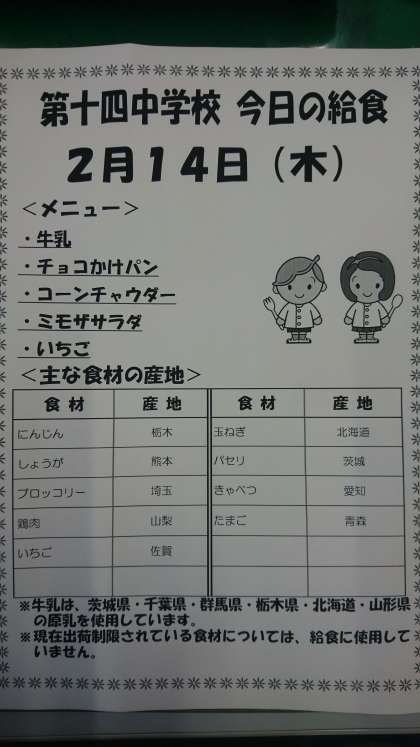 第十四中学校 今日の給食
2月14日（木）
＜メニュー＞
・牛乳
・チョコかけパン
・コーンチャウダー
・ミモザサラダ
・いちご
＜主な食材の産地＞
食材 産地 食材 産地
にんじん 栃木 玉ねぎ 北海道
しょうが 熊本 パセリ 茨城
ブロッコリー 埼玉 きゃべつ 愛知
鶏肉 山梨 たまご 青森
いちご 佐賀
※牛乳は、茨城県・千葉県・群馬県・栃木県・北海道・山形県
の原乳を使用しています。
※現在出荷制限されている食材については、給食に使用して
いません。